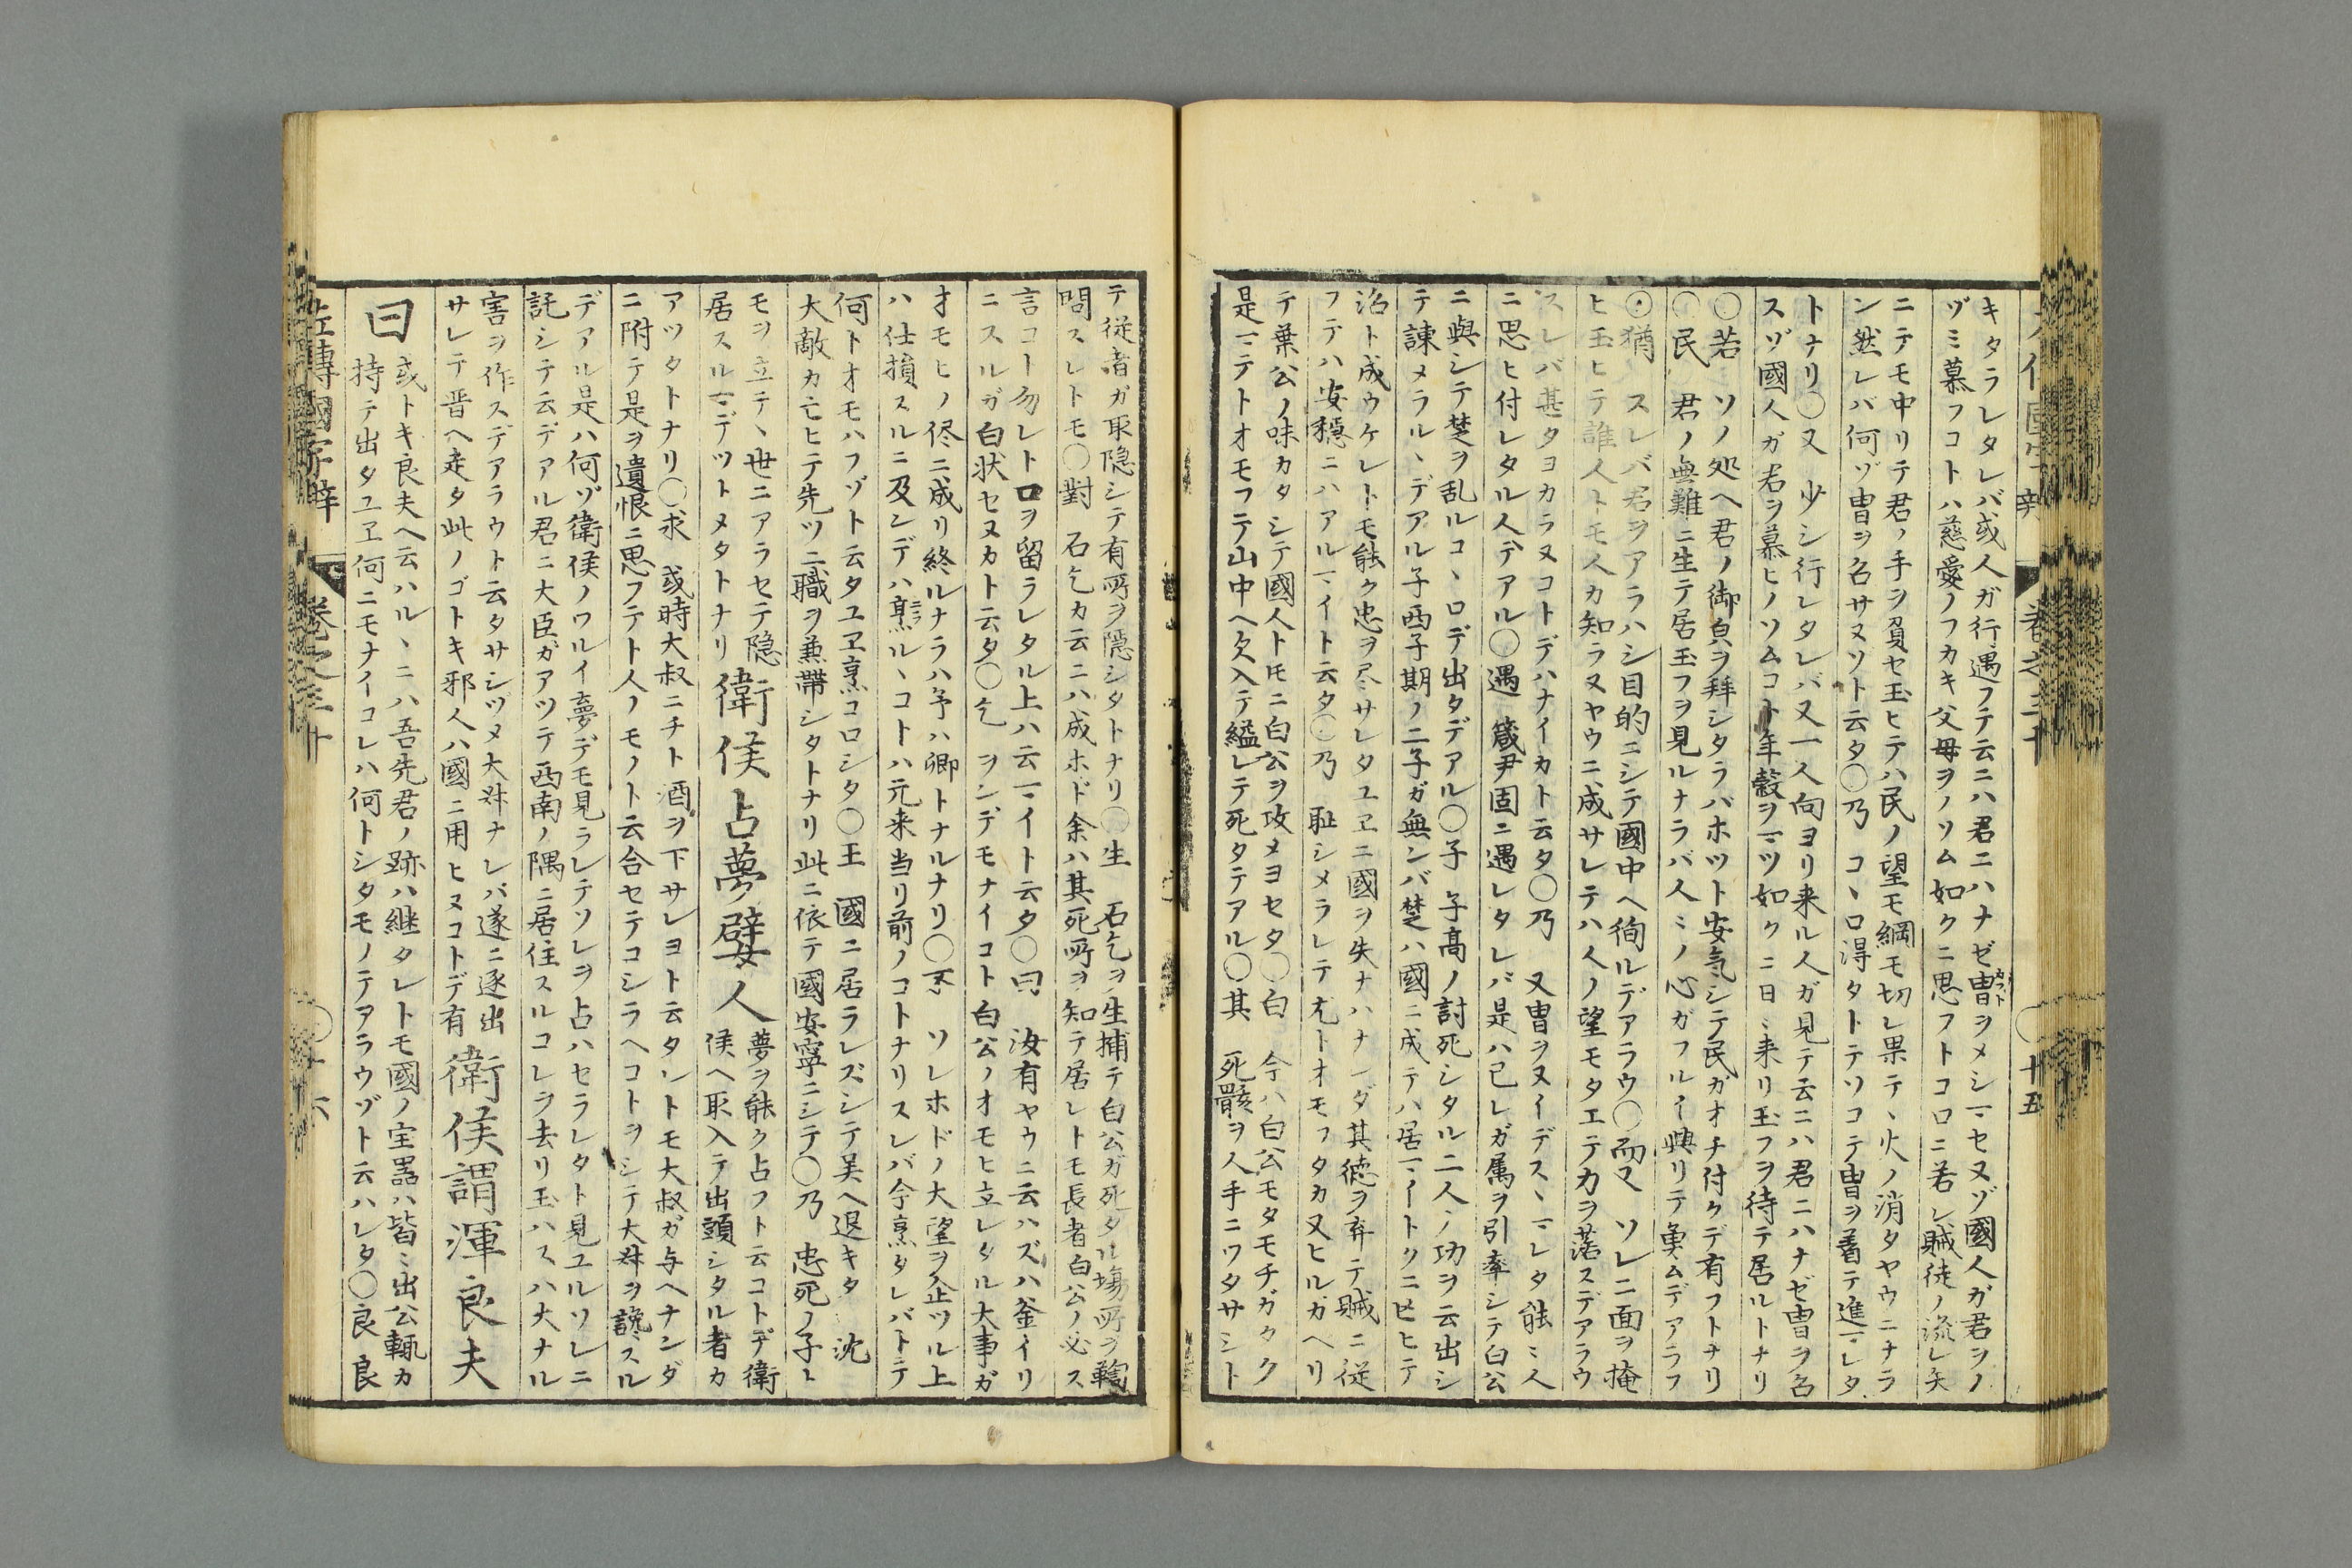 キタラレタレバ或人ガ行遇フテ云ニハ君ニハナゼ冑ヲメシマセヌゾ國人ガ君ヲノ
ゾミ慕フコトハ慈愛ノフカキ父母ヲノソム如クニ思フトコロニ若シ賊徒ノ流レ矢
ニテモ中リテ君ノ手ヲ負セ玉ヒテハ民ノ望モ綱モ切レ果テヽ火ノ消タヤウニナラ
ン然レバ何ゾ冑ヲ名サヌソト云タ〇乃 コヽロ得タトテソコテ冑ヲ着テ進マレタ
トナリ〇又 少シ行レタレバ又一人向ヨリ来ル人ガ見テ云ニハ君ニハナゼ冑ヲ名
スゾ國人ガ君ヲ慕ヒノソムコト年穀ヲマツ如クニ日ミ来リ玉フヲ待テ居ルトナリ
〇若 ソノ処ヘ君ノ御皃ヲ拜シタラバホツト安気シテ民ガオチ付クデ有フトナリ
〇民 君ノ無難ニ生テ居玉フヲ見ルナラバ人ミノ心ガフルイ興リテ勇ムデアラフ
〇猶 スレバ君ヲアラハシ目的ニシテ國中ヘ徇ルデアラウ〇而又 ソレニ面ヲ掩
ヒ玉ヒテ誰人トモ人カ知ラヌヤウニ成サレテハ人ノ望モタエテ力ヲ落スデアラウ
スレバ甚タヨカラヌコトデハナイカト云タ〇乃 又冑ヲヌイデスヽマレタ能ミ人
ニ思ヒ付レタル人デアル〇遇 箴尹固ニ遇レタレバ是ハ己レガ属ヲ引率シテ白公
ニ與シテ楚ヲ乱ルコヽロデ出タデアル〇子 子高ノ討死シタル二人ノ功ヲ云出シ
テ諌メラルヽデアル子西子期ノ二子ガ無ンバ楚ハ國ニ成テハ居マイトクニ亡ヒテ
治ト成ウケレトモ能ク忠ヲ尽サレタユヱニ國ヲ失ナハナンダ其徳ヲ弃テ賊ニ従
フテハ安穏ニハアルマイト云タ〇乃 恥シメラレテ尤トオモフタカ又ヒルカヘリ
テ葉公ノ味カタシテ國人トモニ白公ヲ攻メヨセタ〇白 今ハ白公モタモチガタク
是マテトオモフテ山中ヘ欠入テ縊レテ死タテアル〇其 死骸ヲ人手ニワタサシト
十五
テ従者ガ取隠シテ有所ヲ隠シタトナリ〇生 石乞ヲ生捕テ白公ガ死タル塲所ヲ鞫
問スレトモ〇對 石乞カ云ニハ成ホド余ハ其死所ヲ知テ居レトモ長者白公ノ必ス
言コト勿レト口ヲ留ラレタル上ハ云マイト云タ〇曰 汝有ヤウニ云ハズハ釜イリ
ニスルガ白状セヌカト云タ〇乞 ヲンデモナイコト白公ノオモヒ立レタル大事ガ
オモヒノ侭ニ成リ終ルナラハ予ハ卿トナルナリ〇不 ソレホドノ大望ヲ企ツル上
ハ仕損スルニ及ンデハ烹ルヽコトハ元来当リ前ノコトナリスレバ今烹タレバトテ
何トオモハフゾト云タユヱ烹コロシタ〇王 國ニ居ラレズシテ吴ヘ退キタ 沈
大敵カ亡ヒテ先ツ二職ヲ兼帯シタトナリ此ニ依テ國安寧ニシテ〇乃 忠死ノ子ト
モヲ立テヽ世ニアラセテ隠
居スルマデツトメタトナリ
衛侯占夢嬖人
夢ヲ能ク占フト云コトデ衛
侯ヘ取入テ出頭シタル者カ
アツタトナリ〇求 或時大叔ニチト酒ヲ下サレヨト云タレトモ大叔ガ与ヘナンダ
ニ附テ是ヲ遺恨ニ思フテト人ノモノト云合セテコシラヘコトヲシテ大叔ヲ讒スル
デアル是ハ何ゾ衛侯ノワルイ夢デモ見ラレテソレヲ占ハセラレタト見ユルソレニ
託シテ云デアル君ニ大臣ガアツテ西南ノ隅ニ居住スルコレヲ去リ玉ハスハ大ナル
害ヲ作スデアラウト云タサシヅメ大叔ナレバ遂ニ逐出
サレテ晋ヘ走タ此ノゴトキ邪人ハ國ニ用ヒヌコトデ有
衛侯謂渾良夫
曰
或トキ良夫ヘ云ハルヽニハ吾先君ノ跡ハ継タレトモ國ノ宝器ハ皆ミ出公輒カ
持テ出タユヱ何ニモナイコレハ何トシタモノテアラウゾト云ハレタ〇良 良
左傳國字辯 卷之三十 〇十六